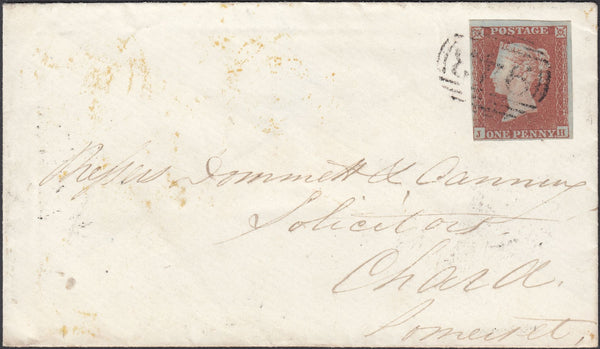 POSTAGE
J ONE PENNY H
Messrs Dommett & Canning
Solicitors
Chard.
Somerset,